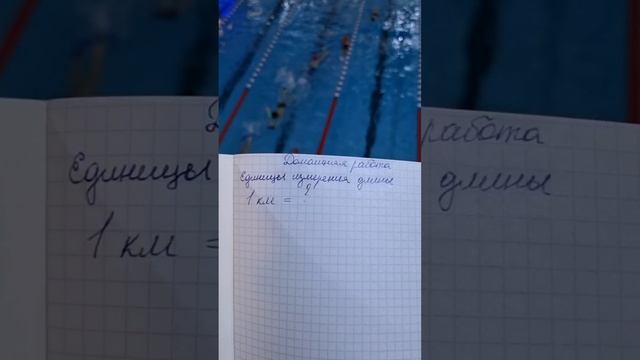 Домашняя работа
Единицы измерения длины
1 км = ?